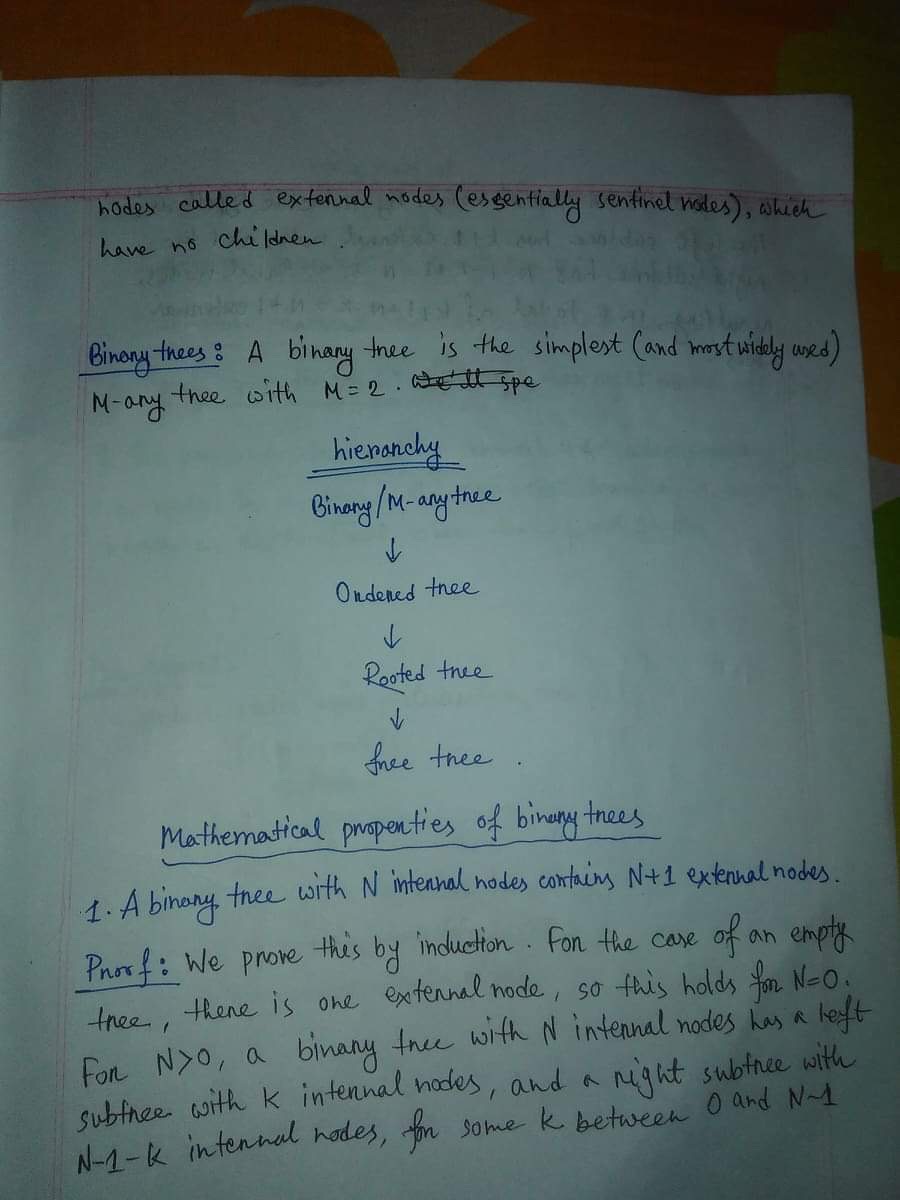 nodes called external nodes (essentially sentinel nodes), which
have no children.
Binary trees: A binary tree is the simplest (and most widely used)
M-ary tree with M=2. We'll spe
hierarchy
Binary/M-ary tree
↓
Ordered tree
↓
Rooted tree
↓
free tree.
Mathematical properties of binary trees
1. A binary tree with N internal nodes contains N+1 external nodes.
Proof: We prove this by induction. For the case of an empty
tree, there is one external node, so this holds for N=0.
For N>0, a binary tree with N internal nodes has a left
subtree with k internal nodes, and a right subtree with
N-1-k internal nodes, for some k between 0 and N-1